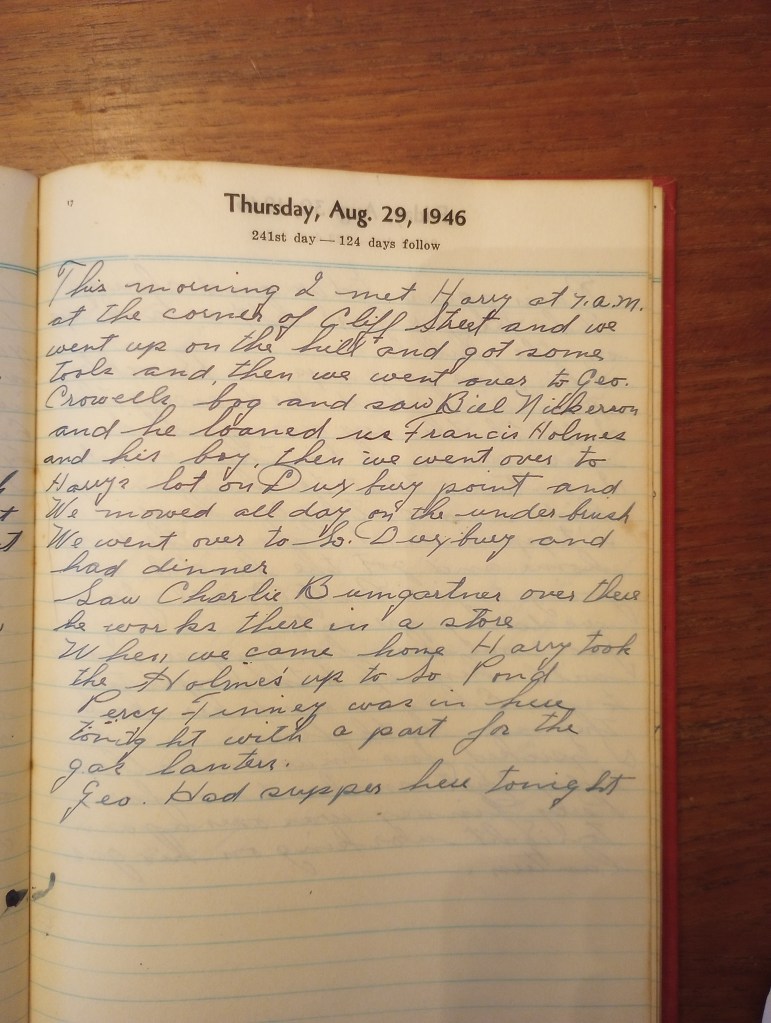 17
Thursday, Aug. 29, 1946
241st day — 124 days follow
This morning I met Harry at 7.a.m.
at the corner of Cliff Street and we
went up on the hill and got some
tools and, then we went over to Geo.
Crowells bog and saw Biel Nickerson
and he loaned us Francis Holmes
and his boy, then we went over to
Harrys lot on Duxbury point and
We mowed all day on the underbrush
We went over to So. Duxbury and
had dinner
Saw Charlie Bumgartner over there
he works there in a store
When, we came home Harry took
the Holmes' up to So Pond
Percy Finney was in here
tonight with a part for the
gas lantern.
Geo. Had supper here tonight